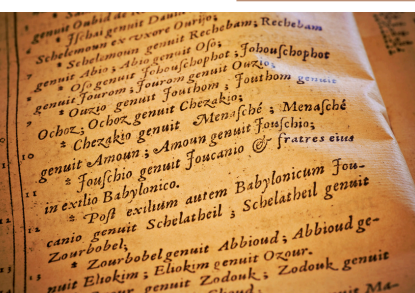 genuit Oubid de
* Jſchai genuit Dauid
Schelemoun ex vxore Ourijo;
* Schelemoun genuit Rechebam; Rechebam
genuit Abio; Abio genuit Oſo;
* Oſo genuit Jehouſchophot; Jehouſchophot
genuit Jourom; Jourom genuit Ouzio;
* Ouzio genuit Jouthom; Jouthom genuit
Ochoz; Ochoz genuit Chezakio;
* Chezakio genuit Menaſché; Menaſché
10 genuit Amoun; Amoun genuit Jouſchio;
11 * Jouſchio genuit Joucanio & fratres eius
in exilio Babylonico.
12 * Poſt exilium autem Babylonicum Jou-
canio genuit Schelatheil; Schelatheil genuit
Zourbobel;
13 * Zourbobel genuit Abbioud; Abbioud ge-
nuit Eliokim; Eliokim genuit Ozour.
genuit Zodouk; Zodouk genuit